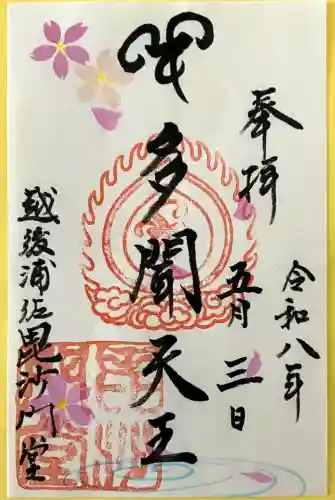 奉拝
令和八年
五月三日
多聞天王
越後浦佐毘沙門堂